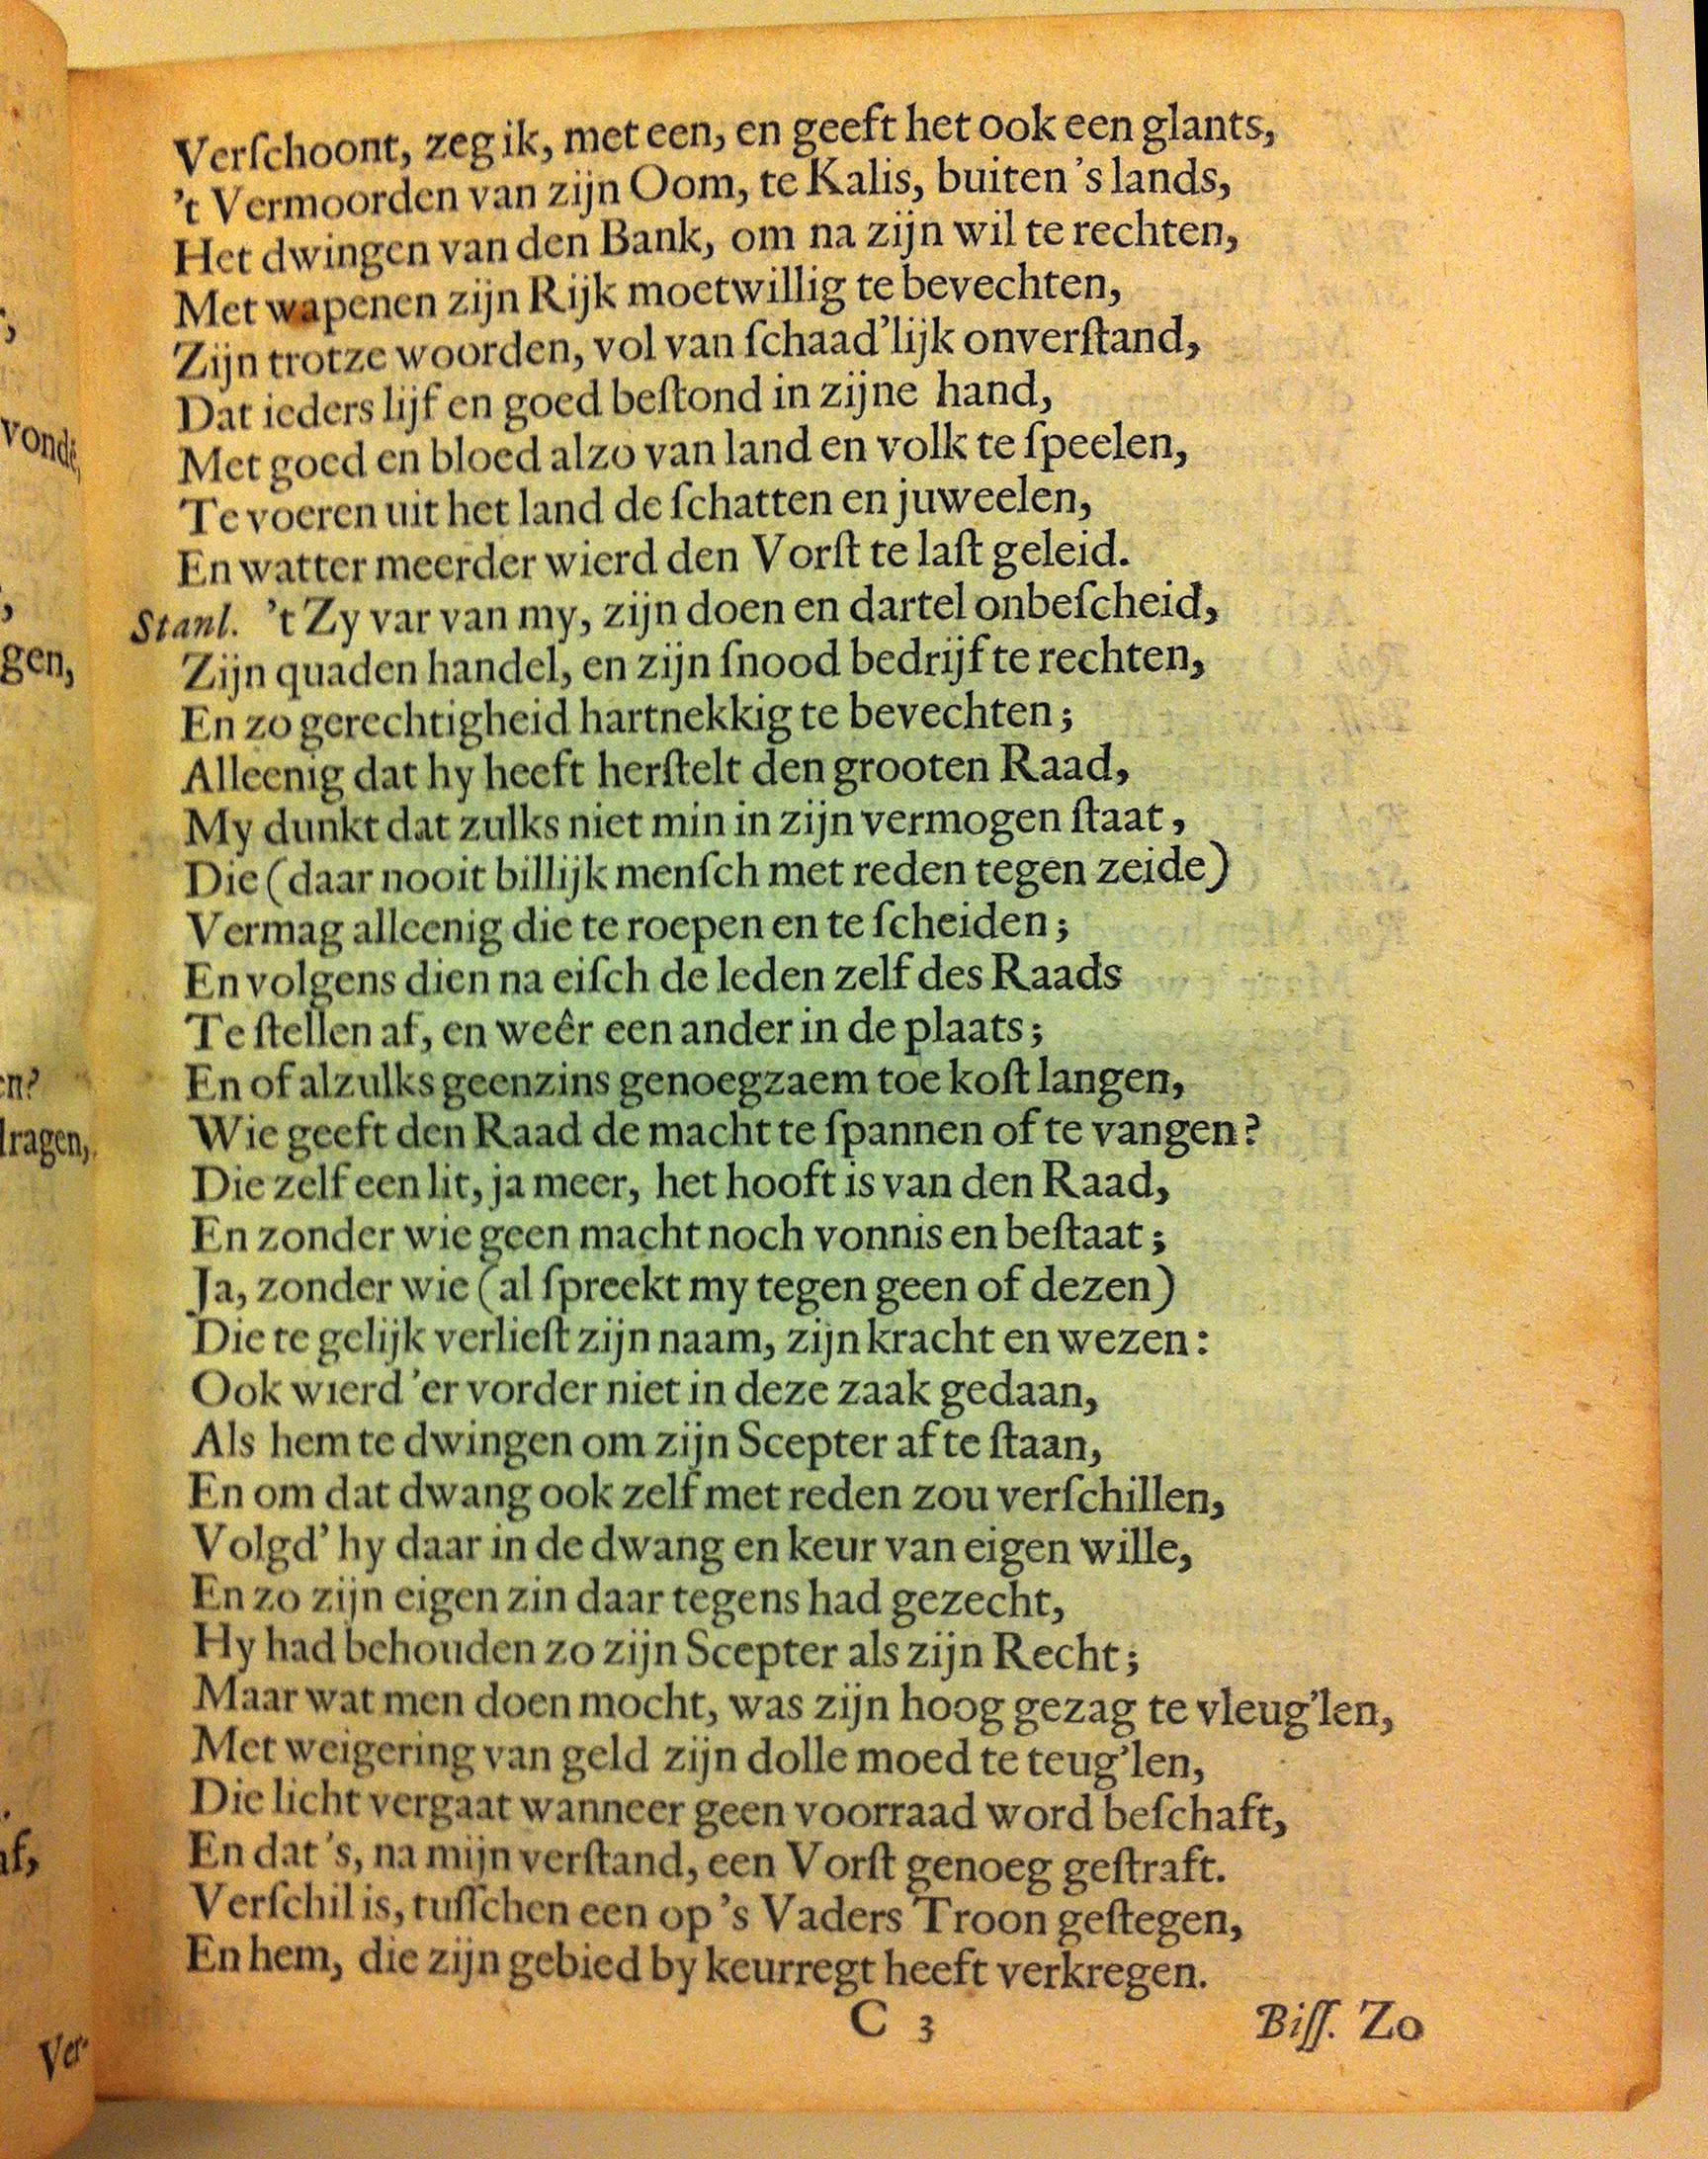 Verſchoont, zeg ik, met een, en geeft het ook een glants,
't Vermoorden van zijn Oom, te Kalis, buiten 's lands,
Het dwingen van den Bank, om na zijn wil te rechten,
Met wapenen zijn Rijk moetwillig te bevechten,
Zijn trotze woorden, vol van ſchaad'lijk onverſtand,
Dat ieders lijf en goed beſtond in zijne hand,
Met goed en bloed alzo van land en volk te ſpeelen,
Te voeren uit het land de ſchatten en juweelen,
En watter meerder wierd den Vorſt te laſt geleid.
Stanl. 't Zy var van my, zijn doen en dartel onbeſcheid,
Zijn quaden handel, en zijn ſnood bedrijf te rechten,
En zo gerechtigheid hartnekkig te bevechten;
Alleenig dat hy heeft herſtelt den grooten Raad,
My dunkt dat zulks niet min in zijn vermogen ſtaat,
Die (daar nooit billijk menſch met reden tegen zeide)
Vermag alleenig die te roepen en te ſcheiden;
En volgens dien na eiſch de leden zelf des Raads
Te ſtellen af, en weêr een ander in de plaats;
En of alzulks geenzins genoegzaem toe koſt langen,
Wie geeft den Raad de macht te ſpannen of te vangen?
Die zelf een lit, ja meer, het hooft is van den Raad,
En zonder wie geen macht noch vonnis en beſtaat;
Ja, zonder wie (al ſpreekt my tegen geen of dezen)
Die te gelijk verlieſt zijn naam, zijn kracht en wezen:
Ook wierd 'er vorder niet in deze zaak gedaan,
Als hem te dwingen om zijn Scepter af te ſtaan,
En om dat dwang ook zelf met reden zou verſchillen,
Volgd' hy daar in de dwang en keur van eigen wille,
En zo zijn eigen zin daar tegens had gezecht,
Hy had behouden zo zijn Scepter als zijn Recht;
Maar wat men doen mocht, was zijn hoog gezag te vleug'len,
Met weigering van geld zijn dolle moed te teug'len,
Die licht vergaat wanneer geen voorraad word beſchaft,
En dat 's, na mijn verſtand, een Vorſt genoeg geſtraft.
Verſchil is, tuſſchen een op 's Vaders Troon geſtegen,
En hem, die zijn gebied by keurregt heeft verkregen.
C 3 Biſſ. Zo